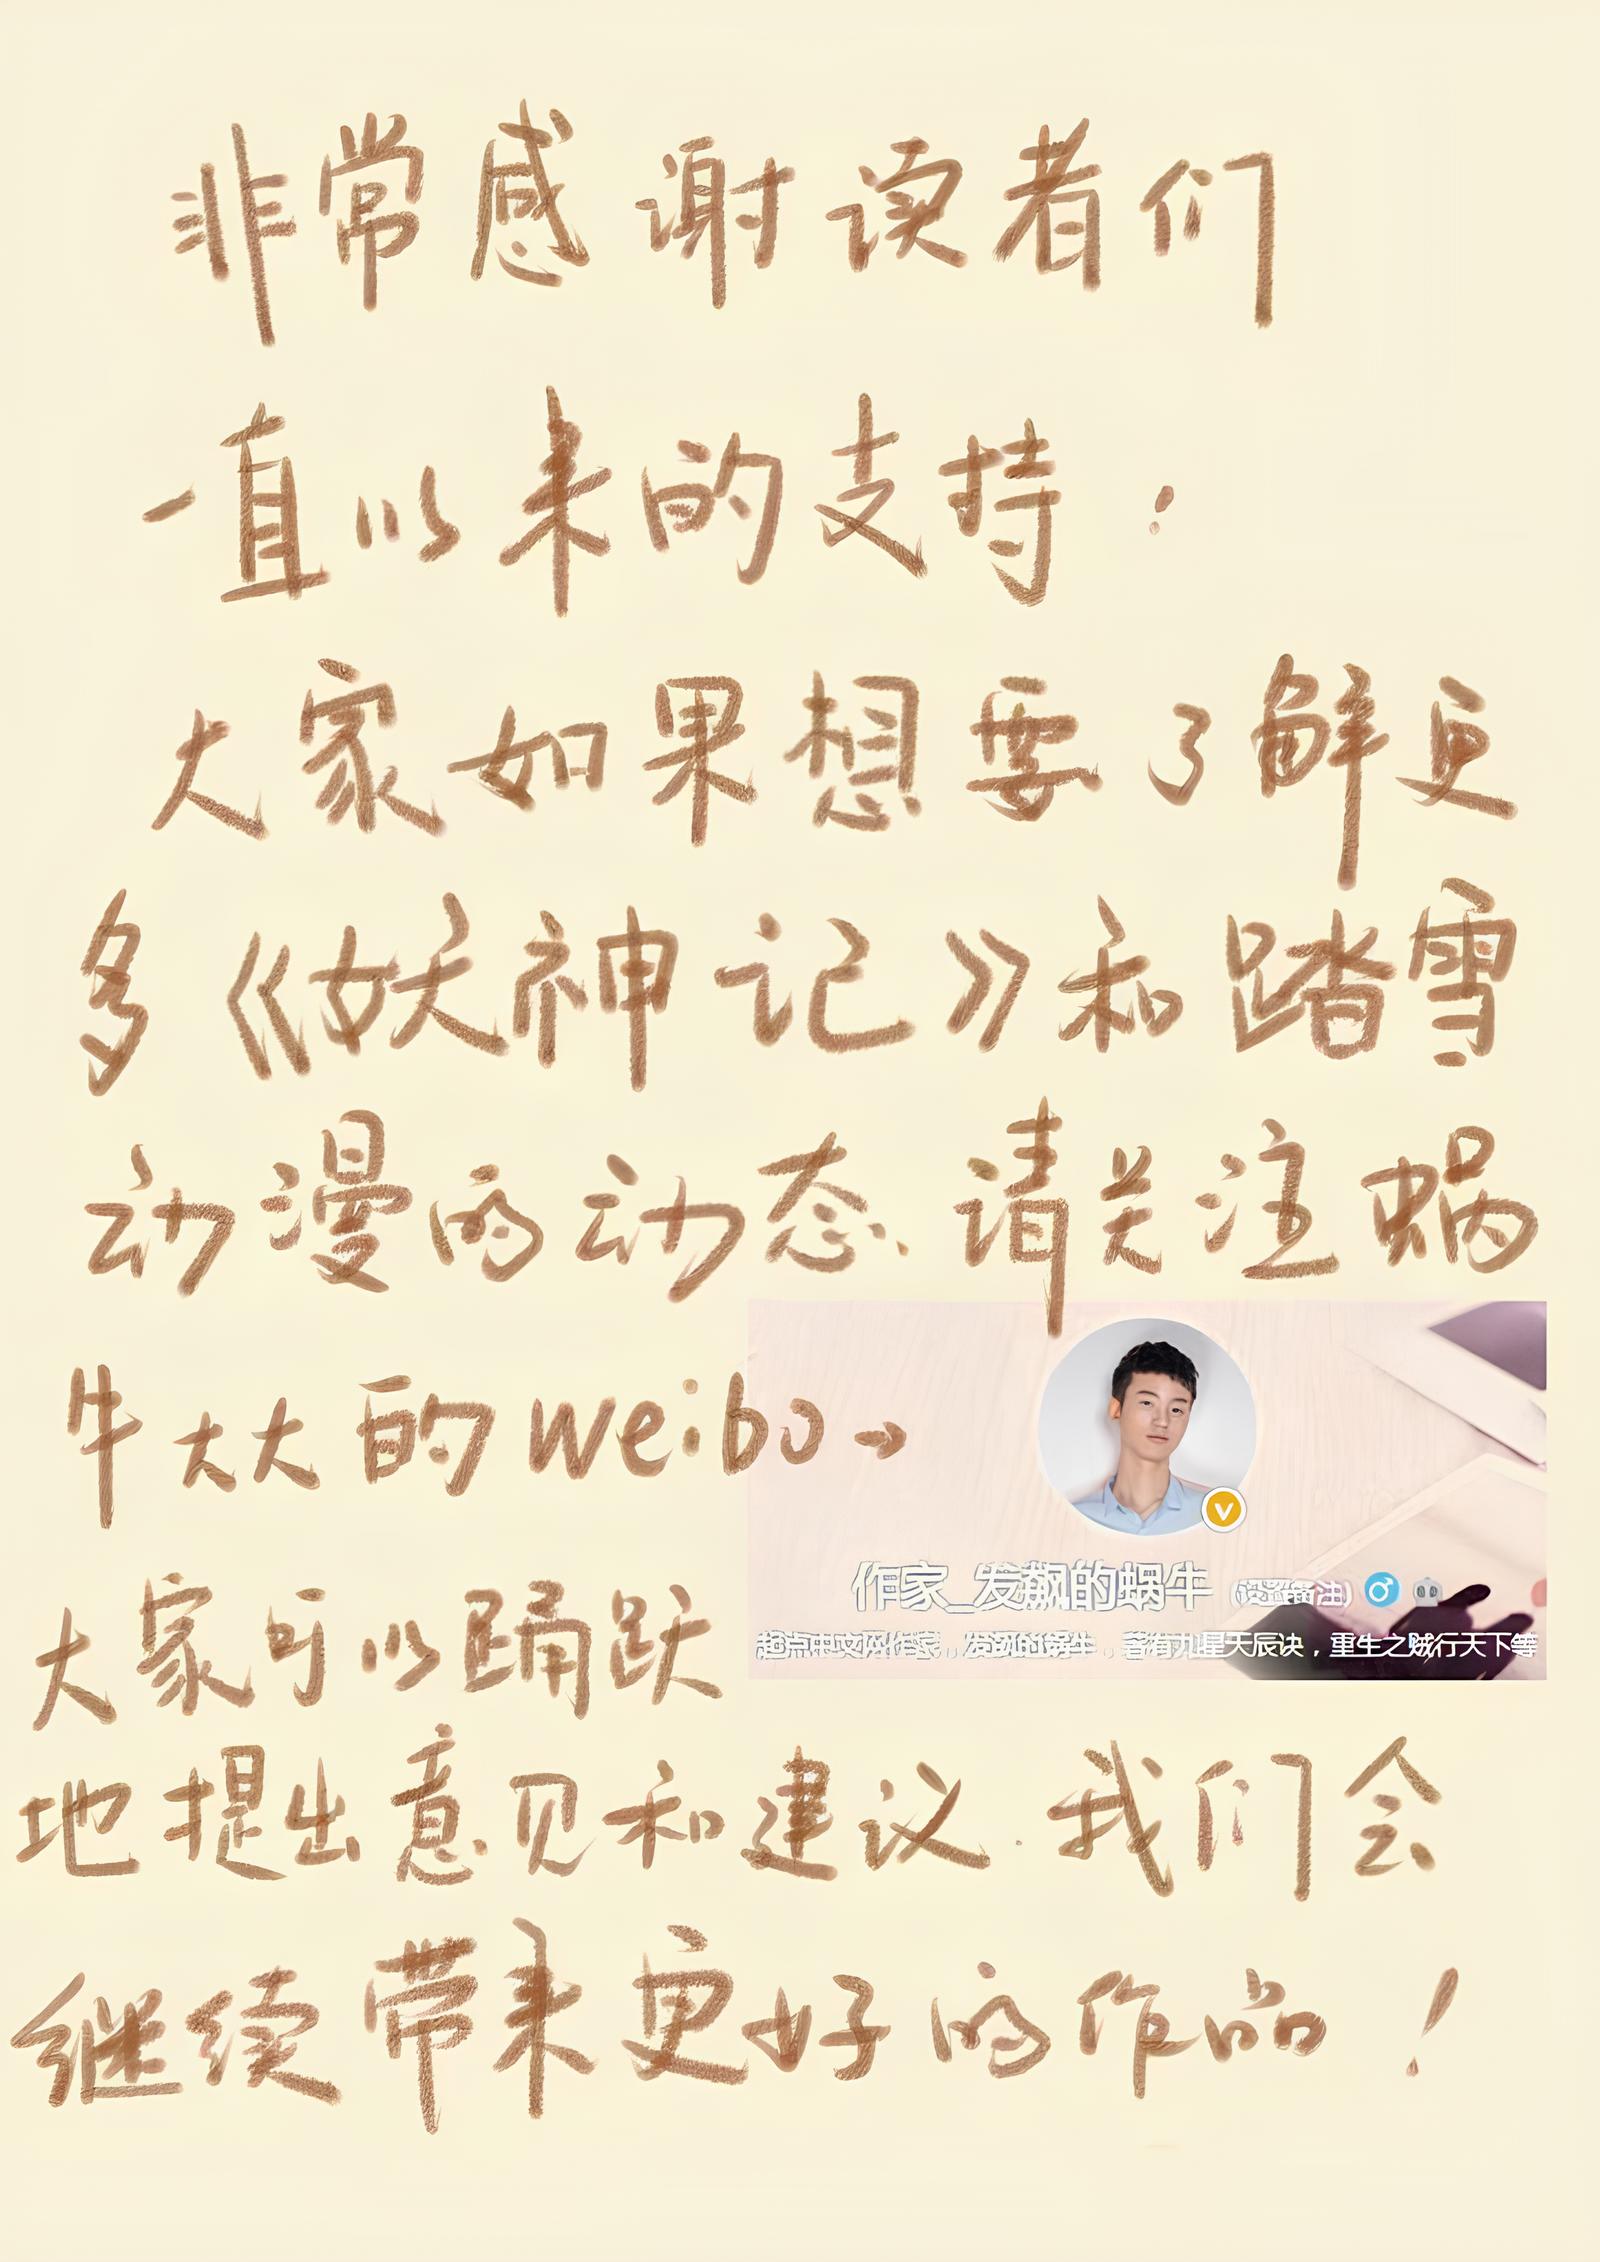 非常感谢读者们
一直以来的支持！
大家如果想要了解更
多《妖神记》和踏雪
动漫的动态、请关注蜗
牛大大的weibo→
作家_发飙的蜗牛
起点中文网作家，发飙的蜗牛，著有九星天辰诀，重生之贼行天下等
大家可以踊跃
地提出意见和建议.我们会
继续带来更好的作品！